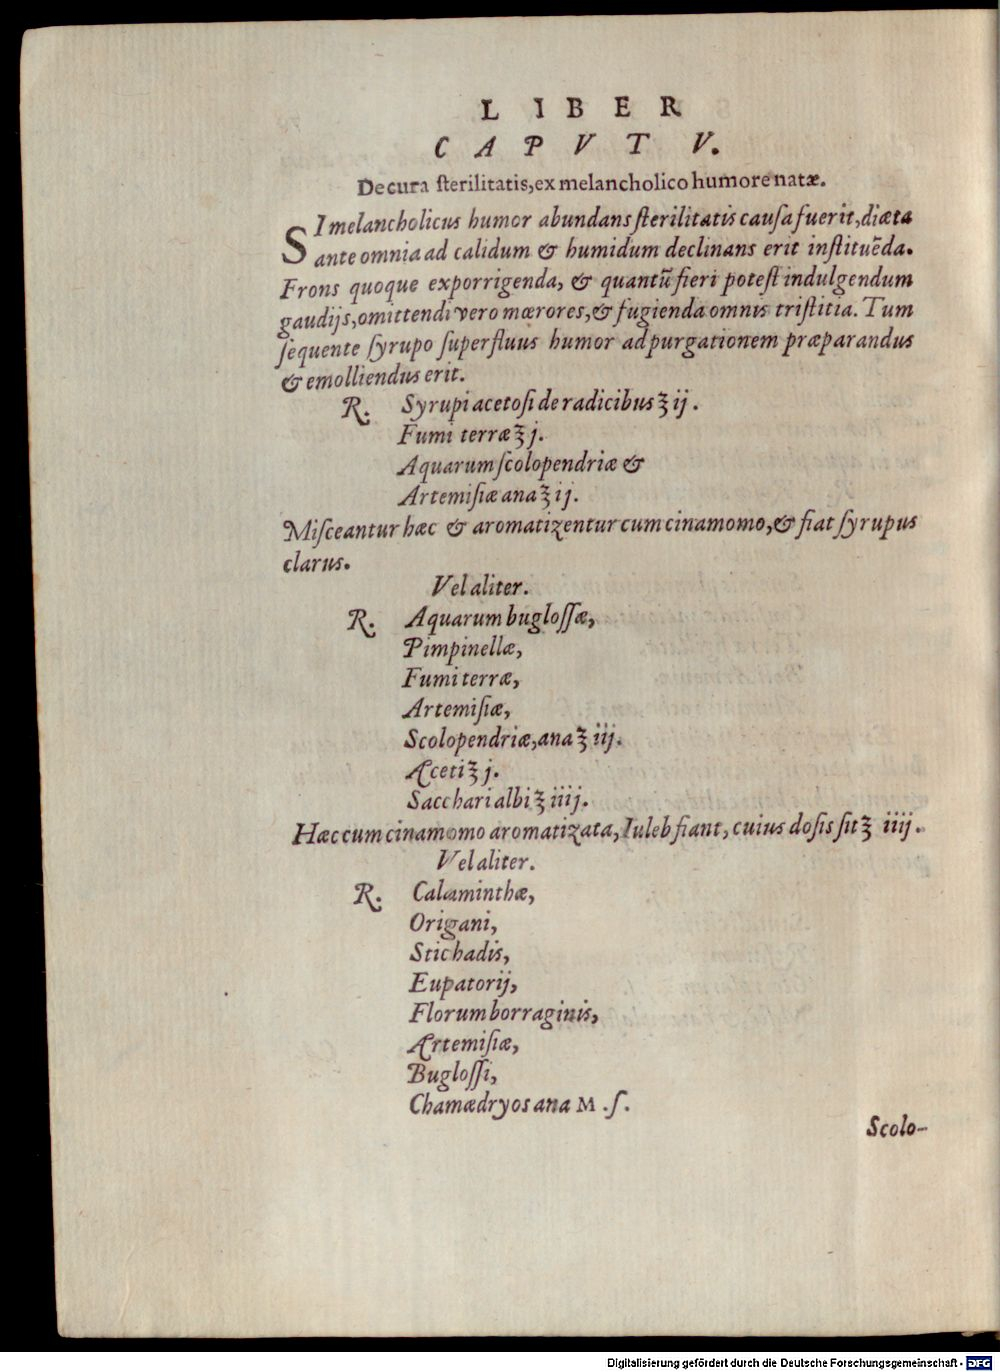 LIBER
CAPVT V.
De cura ſterilitatis, ex melancholico humore natæ.
SI melancholicus humor abundans ſterilitatis cauſa fuerit, diæta
ante omnia ad calidum & humidum declinans erit inſtituẽda.
Frons quoque exporrigenda, & quantũ fieri poteſt indulgendum
gaudijs, omittendi vero mœrores, & fugienda omnis triſtitia. Tum
ſequente ſyrupo ſuperfluus humor ad purgationem præparandus
& emolliendus erit.
R. Syrupi acetoſi de radicibus ℥ ij.
Fumi terræ ℥ j.
Aquarum ſcolopendriæ &
Artemiſiæ ana ℥ ij.
Miſceantur hæc & aromatizentur cum cinamomo, & fiat ſyrupus
clarus.
Vel aliter.
R. Aquarum bugloſſæ,
Pimpinellæ,
Fumi terræ,
Artemiſiæ,
Scolopendriæ, ana ℥ iij.
Aceti ℥ j.
Sacchari albi ℥ iiij.
Hæc cum cinamomo aromatizata, Iuleb fiant, cuius doſis ſit ℥ iiij.
Vel aliter.
R. Calaminthæ,
Origani,
Stichadis,
Eupatorij,
Florum borraginis,
Artemiſiæ,
Bugloſſi,
Chamædryos ana M. ſ.
Scolo-
Digitalisierung gefördert durch die Deutsche Forschungsgemeinschaft - DFG